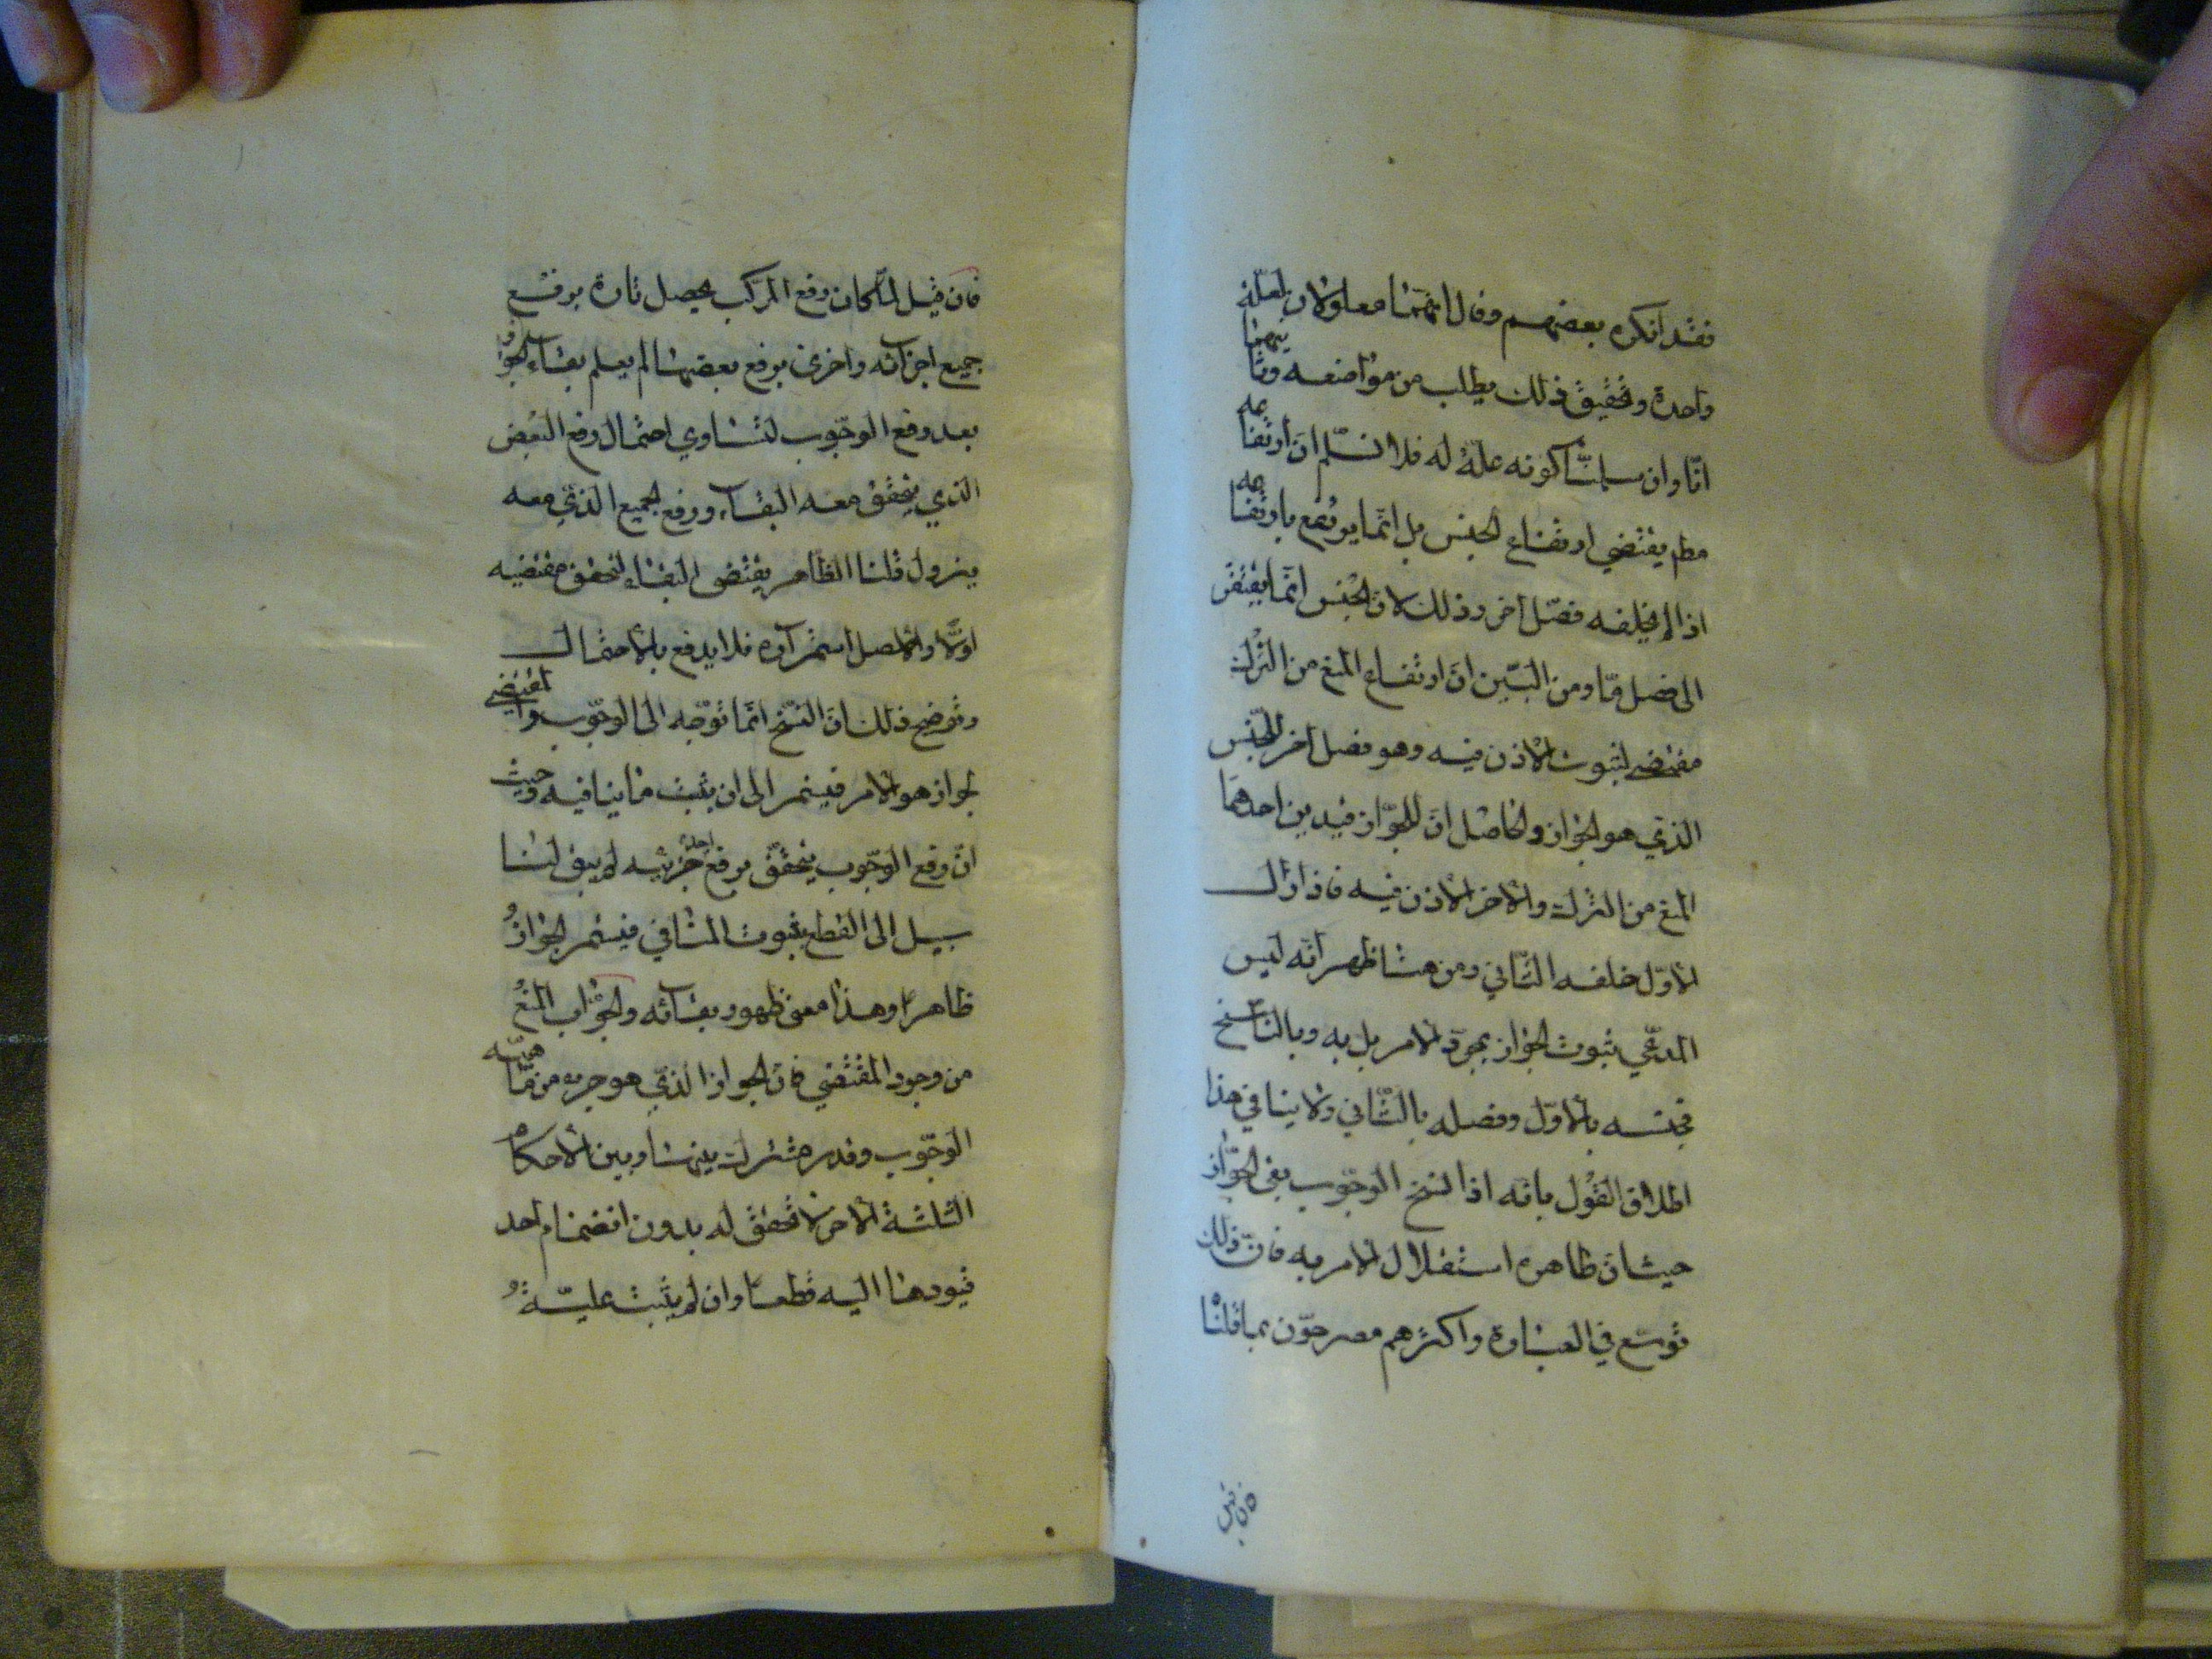 فقد انكره بعضهم وقال انهما معلولان لعلة
واحدة وتحقيق ذلك يطلب من مواضعه وثا
نيهما
انا وان سلمنا كونه علة له فلا نسلم ان ارتفا
عه
مطم يقتضي ارتفاع الجنس بل انما يرتفع بارتفا
عه
اذا لم يخلفه فصل اخر وذلك لان الجنس انما يفتقر
الى فصل ما ومن البين ان ارتفاع المنع من الترك
مقتضي لثبوت الاذن فيه وهو فصل اخر للجنس
الذي هو الجواز والحاصل ان للجواز قيدين احدهما
المنع من الترك والاخر الاذن فيه فاذا زال
الاول خلفه الثاني ومن هنا ظهر انه ليس
المدعي ثبوت الجواز بمجرد الامر بل به وبالناسخ
فجنسه بالاول وفصله بالثاني ولا ينافي هذا
اطلاق القول بانه اذا نسخ الوجوب بقي الجواز
حيث ان ظاهره استقلال الامر به فان ذلك
توسع في العبارة واكثرهم مصرحون بما قلنا
فان قيل
فان قيل لما كان رفع المركب يحصل تارة برفع
جميع اجزائه واخرى برفع بعضها لم يعلم بقاء الجواز
بعد رفع الوجوب لتساوي احتمال رفع البعض
الذي يتحقق معه البقاء ورفع الجميع الذي معه
يزول قلنا الظاهر يقتضى البقاء لتحقق مقتضيه
اولا والاصل استمراره فلا يدفع بالاحتمال
وتوضيح ذلك ان النسخ انما توجه الى الوجوب والمقتضي
لجواز هو الامر فيستمر الى ان يثبت ما ينافيه وحيث
ان رفع الوجوب يتحقق برفع احد جزئيه لم يبق لنا
سبيل الى القطع بثبوت المنافي فيستمر الجواز
ظاهرا وهذا معنى ظهور بقائه والجواب المنع
من وجود المقتضي فان الجواز الذي هو جزء من ما
هية
الوجوب وقدر مشترك بينها وبين الاحكام
الثلثة الاخر لا تحقق له بدون انضمام احد
قيودها اليه قطعا وان لم يثبت علية